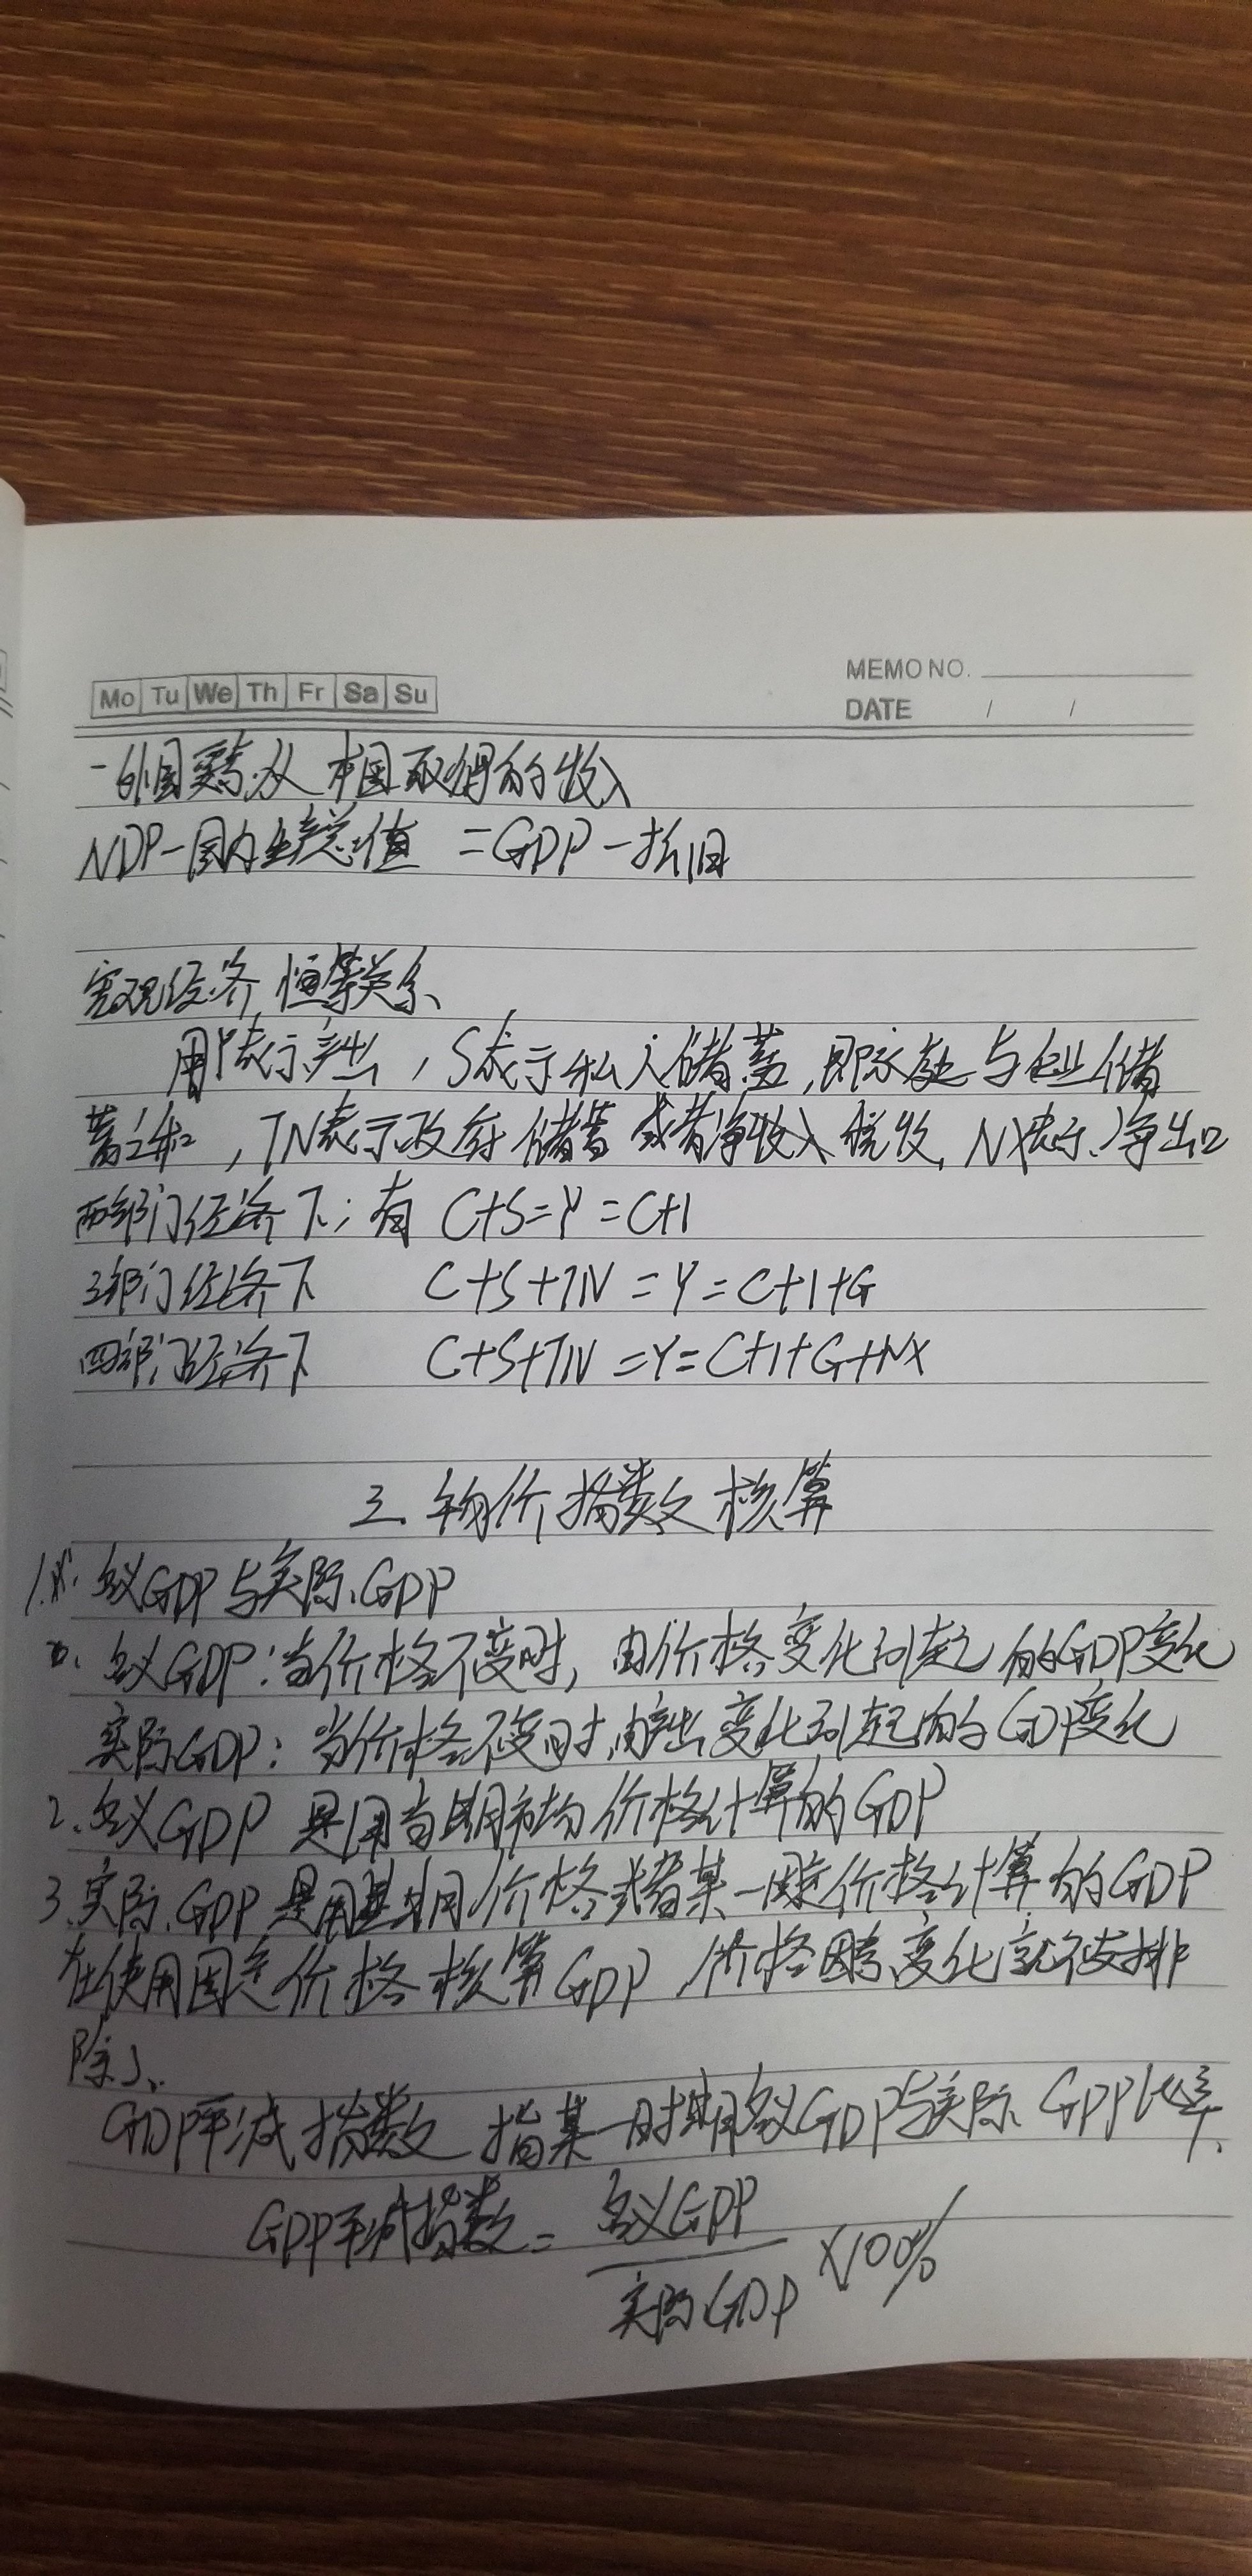 Mo Tu We Th Fr Sa Su
MEMO NO.
DATE / /
-外国要素从本国取得的收入
NDP-国内生产总值 =GDP-折旧
宏观经济恒等关系
用Y表示产出,S表示私人储蓄,即家庭与企业储
蓄之和,TN表示政府储蓄或者净收入税收,NX表示净出口
两部门经济下;有 C+S=Y=C+I
3部门经济下 C+S+TN=Y=C+I+G
四部门经济下 C+S+TN=Y=C+I+G+NX
三.物价指数核算
1. 名义GDP与实际GDP
名义GDP:当价格不变时,由价格变化引起的GDP变化
实际GDP:当价格不变时,由产出变化引起的GDP变化
2.名义GDP是用当期市场价格计算的GDP
3.实际GDP是用基期价格或者某一固定价格计算的GDP
在使用固定价格核算GDP,价格因素变化就被排
除了.
GDP平减指数 指某一时期名义GDP与实际GDP比率.
GDP平减指数=名义GDP
实际GDP ×100%